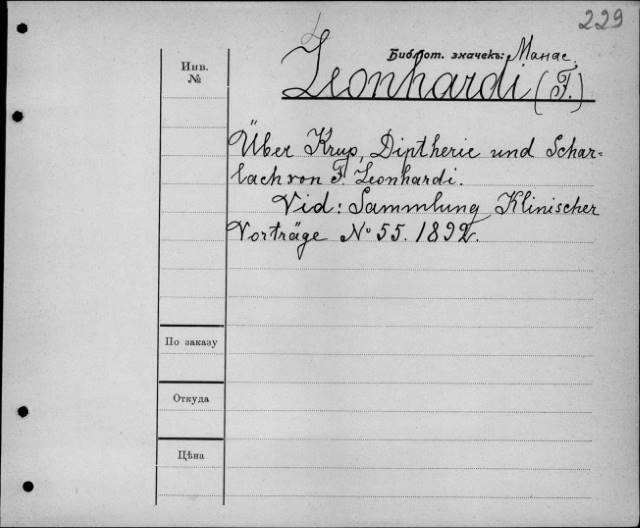 229
Библіот. значекъ: Манас.
Инв.
№
Leonhardi (F.)
Über Krup, Diptherie und Schar=
lach von F. Leonhardi.
Vid: Sammlung Klinischer
Vorträge No 55. 1892.
По заказу
Откуда
Цѣна